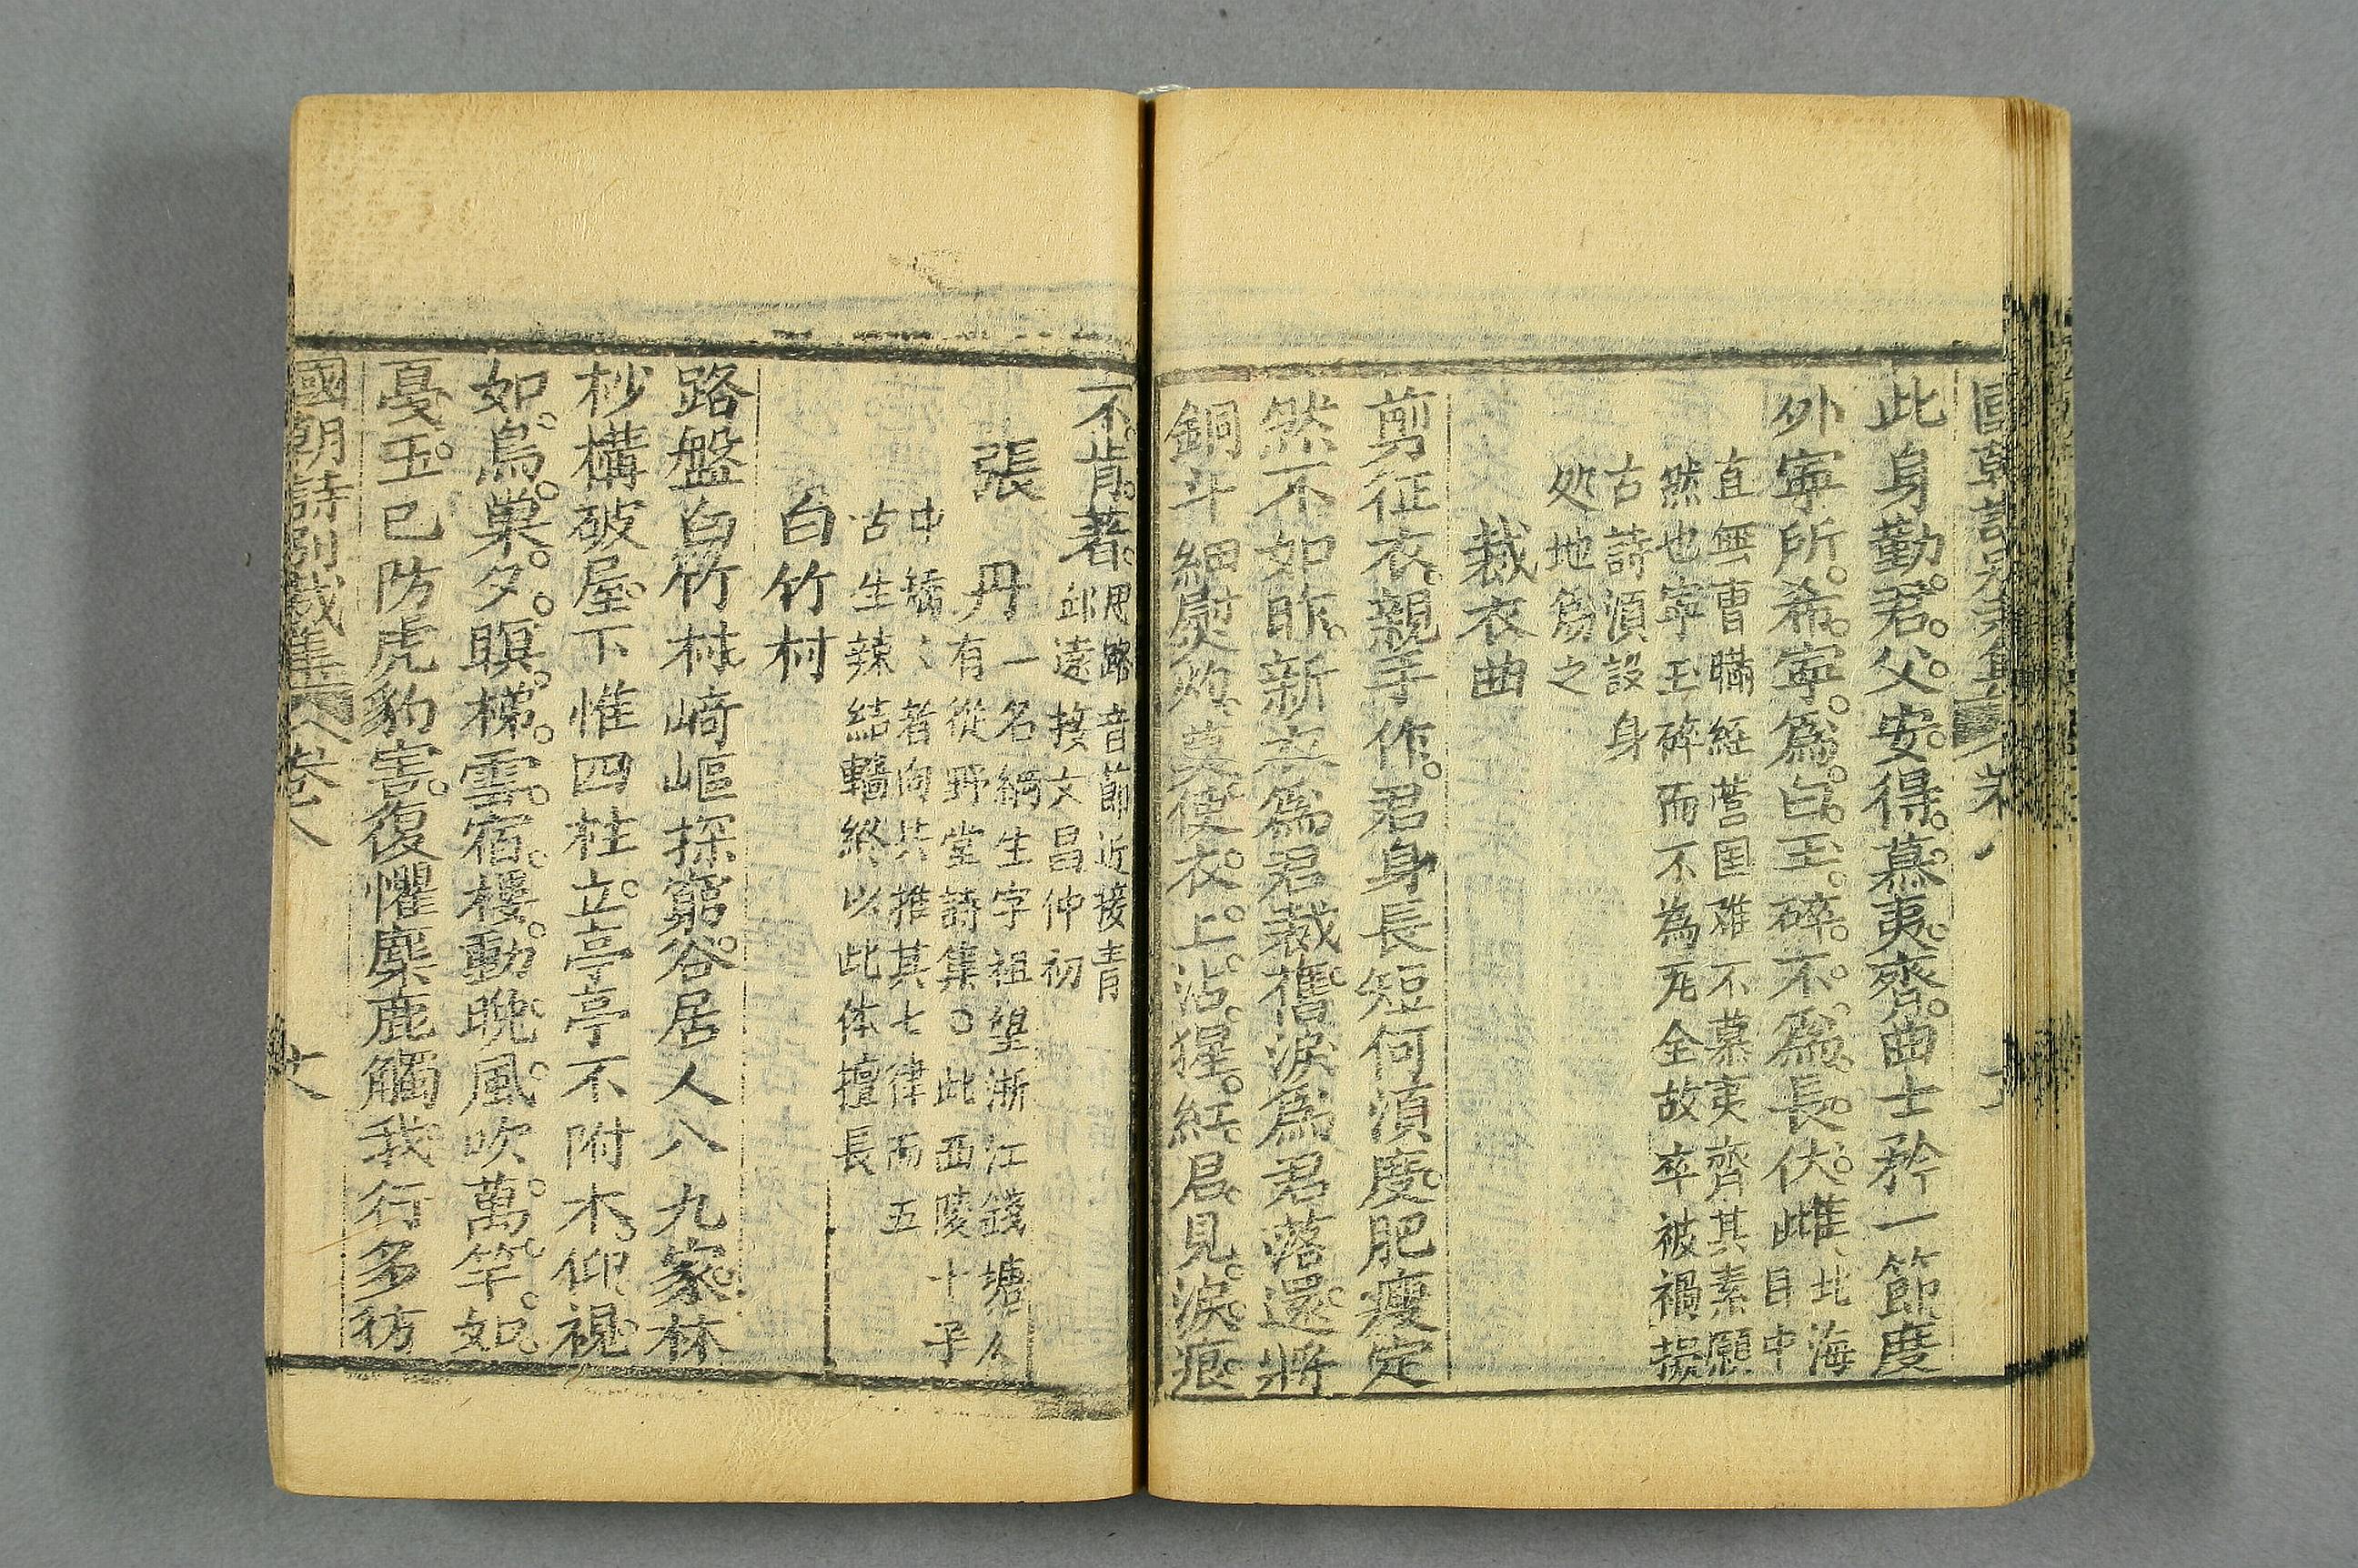 此身勤君父安得慕夷齊曲士矜一節度
外寧所希寧爲白玉碎不爲長伏雌北海
目中
直無曹瞞經营国难不慕夷齊其素願
然也寧玉碎而不為瓦全故卒被禍損
古詩須設身
処地為之
裁衣曲
剪征衣親手作君身長短何須度肥瘦定
然不如昨新衣爲君裁舊淚爲君落還將
銅斗細熨灼莫使衣上沾猩紅君見淚痕
不肯著思路音節近接青
邱遠接文昌仲初
張丹一名綱生字祖望浙江錢塘人
有從野堂詩集○此西陵十子
中矯々者向共推其七律而五
古生辣結轖終以此体擅長
白竹村
路盤白竹村崎嶇探窮谷居人八九家林
杪構破屋下惟四柱立亭亭不附木仰視
如鳥巢夕暝梯雲宿樓動晚風吹萬竿如
戛玉已防虎豹害復懼麋鹿觸我行多彷
國朝詩別裁集卷八